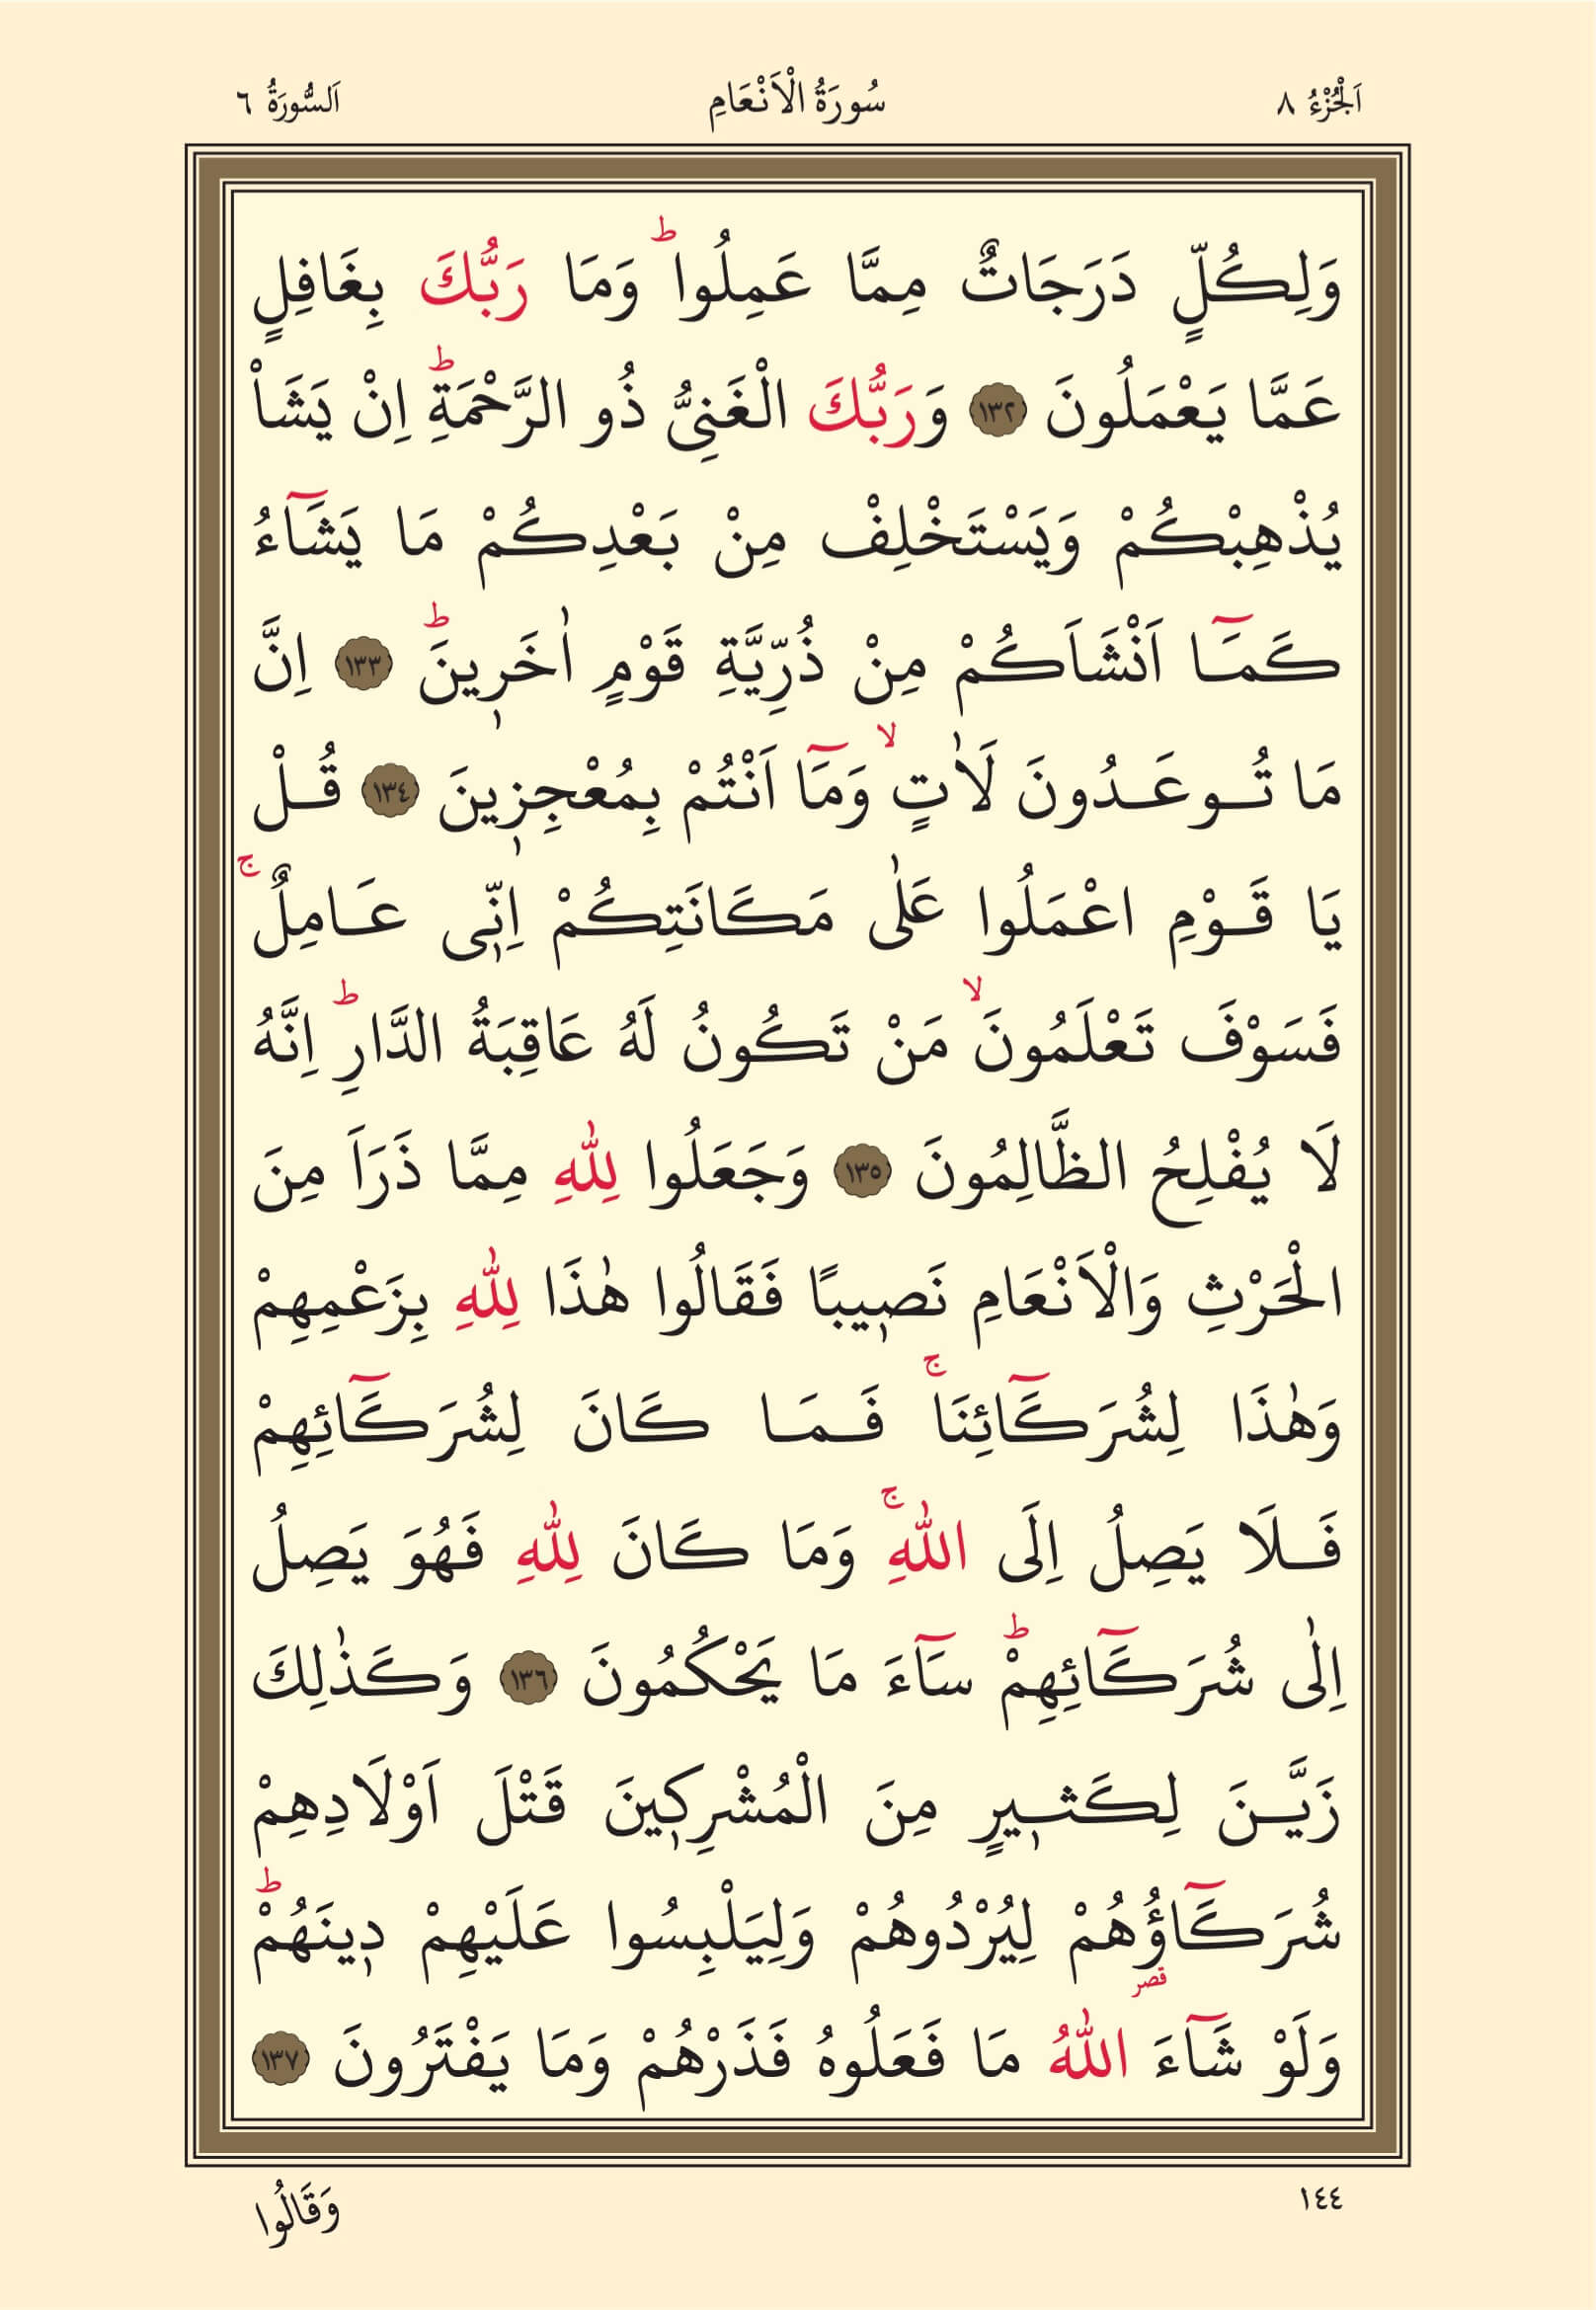 اَلْجُزْءُ ٨ سُورَةُ الْاَنْعَامِ اَلسُّورَةُ ٦
وَلِكُلٍّ دَرَجَاتٌ مِمَّا عَمِلُواۜ وَمَا رَبُّكَ بِغَافِلٍ
عَمَّا يَعْمَلُونَ ﴿١٣٢﴾ وَرَبُّكَ الْغَنِىُّ ذُو الرَّحْمَةِۜ اِنْ يَشَأْ
يُذْهِبْكُمْ وَيَسْتَخْلِفْ مِنْ بَعْدِكُمْ مَا يَشَٓاءُ
كَمَٓا اَنْشَاَكُمْ مِنْ ذُرِّيَّةِ قَوْمٍ اٰخَر۪ينَۜ ﴿١٣٣﴾ اِنَّ
مَا تُوعَدُونَ لَاٰتٍۙ وَمَٓا اَنْتُمْ بِمُعْجِز۪ينَ ﴿١٣٤﴾ قُلْ
يَا قَوْمِ اعْمَلُوا عَلٰى مَكَانَتِكُمْ اِنّ۪ى عَامِلٌۚ
فَسَوْفَ تَعْلَمُونَۙ مَنْ تَكُونُ لَهُ عَاقِبَةُ الدَّارِۜ اِنَّهُ
لَا يُفْلِحُ الظَّالِمُونَ ﴿١٣٥﴾ وَجَعَلُوا لِلّٰهِ مِمَّا ذَرَاَ مِنَ
الْحَرْثِ وَالْاَنْعَامِ نَص۪يبًا فَقَالُوا هٰذَا لِلّٰهِ بِزَعْمِهِمْ
وَهٰذَا لِشُرَكَٓائِنَاۚ فَمَا كَانَ لِشُرَكَٓائِهِمْ
فَلَا يَصِلُ اِلَى اللّٰهِۚ وَمَا كَانَ لِلّٰهِ فَهُوَ يَصِلُ
اِلٰى شُرَكَٓائِهِمْۜ سَٓاءَ مَا يَحْكُمُونَ ﴿١٣٦﴾ وَكَذٰلِكَ
زَيَّنَ لِكَث۪يرٍ مِنَ الْمُشْرِك۪ينَ قَتْلَ اَوْلَادِهِمْ
شُرَكَٓاؤُ۬هُمْ لِيُرْدُوهُمْ وَلِيَلْبِسُوا عَلَيْهِمْ د۪ينَهُمْۜ
قصر
وَلَوْ شَٓاءَ اللّٰهُ مَا فَعَلُوهُ فَذَرْهُمْ وَمَا يَفْتَرُونَ ﴿١٣٧﴾
١٤٤ وَقَالُوا